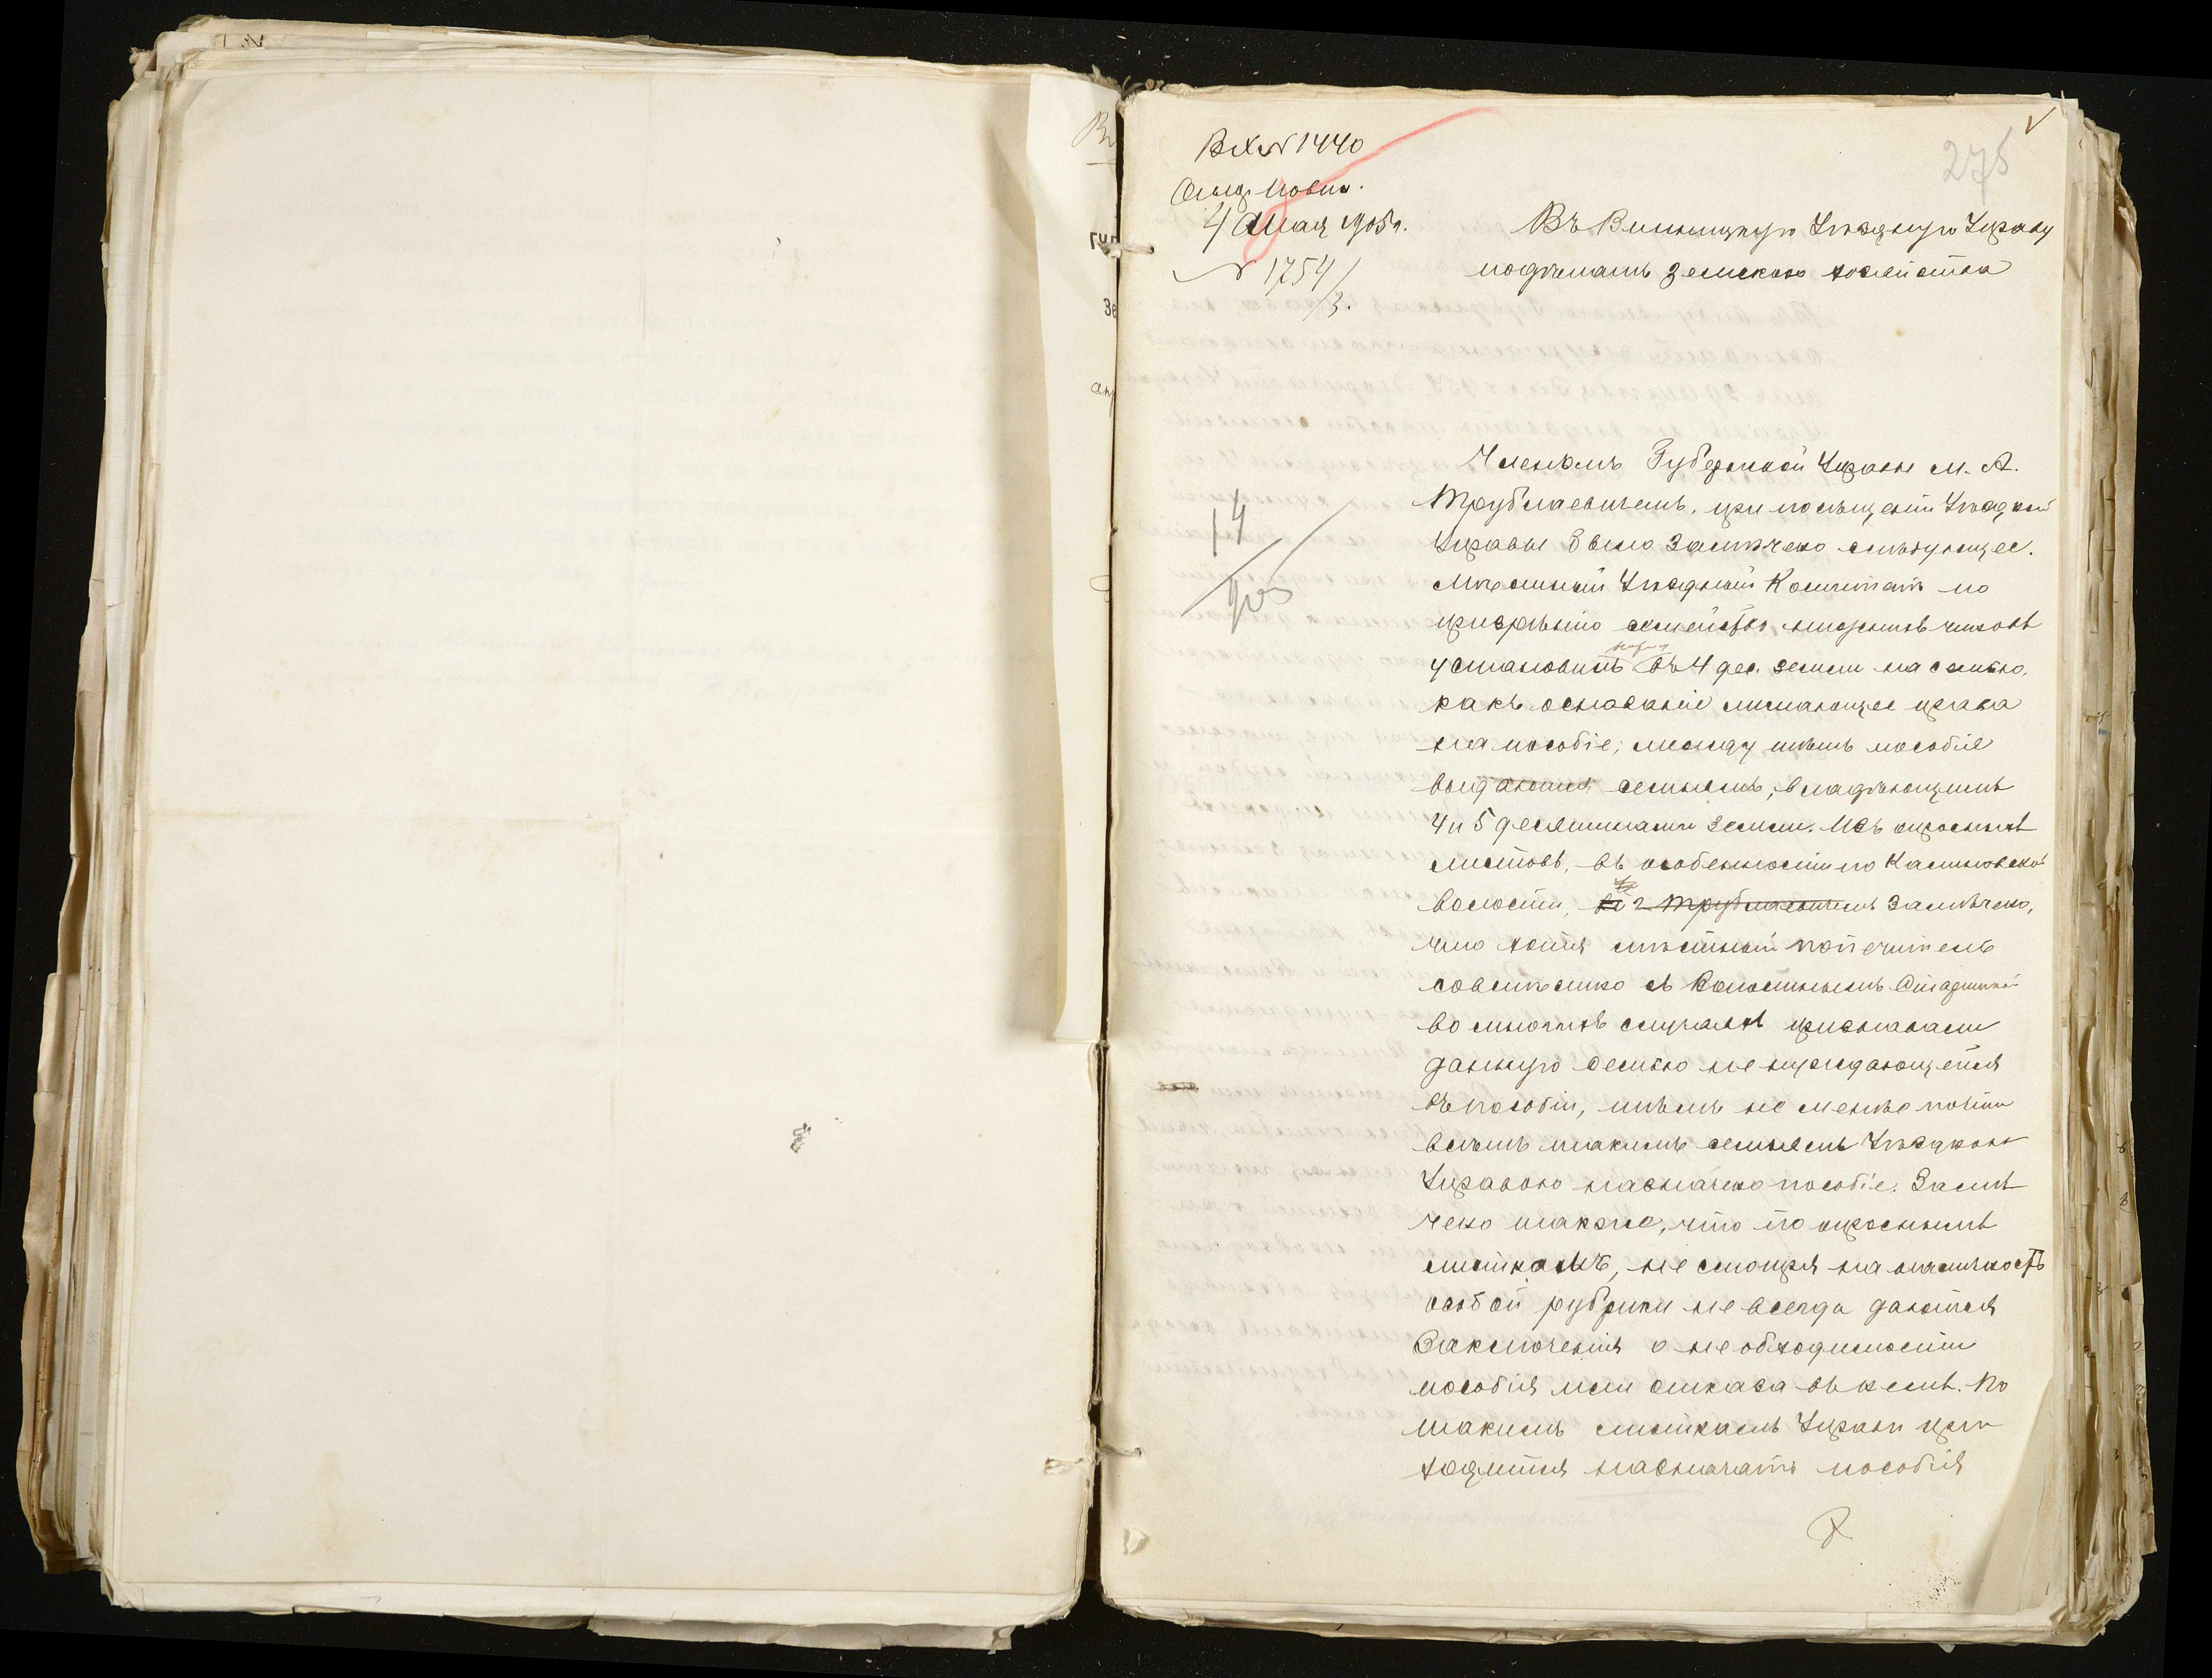 275
Вх № 1440
4 Мая 1905 г.
№ 1754/3.
Въ Винницкую Уѣздную Управу
по дѣламъ Земскаго хозяйства
14
905
Членомъ Губернской Управы М. А.
Трублаевичемъ, при посѣщеніи Уѣздной
Управы было замѣчено слѣдующее.
Мѣстный Уѣздный Комитетъ по
призрѣнію семействъ нижнихъ чиновъ
установилъ норму въ 4 дес. земли на семью,
какъ основаніе лишающее права
на пособіе; между тѣмъ пособія
выдаются семьямъ, владѣющимъ
4 и 5 десятинами земли. Изъ опросныхъ
листовъ, въ особенности по Калиновской
волости, г. Трублаевичемъ замѣчено,
что хотя мѣстный попечитель
совмѣстно съ Волостнымъ Старшиной
во многихъ случаяхъ признавали
данную семью не нуждающейся
въ пособіи, тѣмъ не менѣе почти
всѣмъ такимъ семьямъ Уѣздною
Управою назначено пособіе. Замѣ
чено также, что по опроснымъ
листкамъ, не смотря на наличность
особой рубрики не всегда даются
Заключенія о необходимости
пособія или отказа въ немъ. По
такимъ листкамъ Управѣ при
ходится назначать пособія